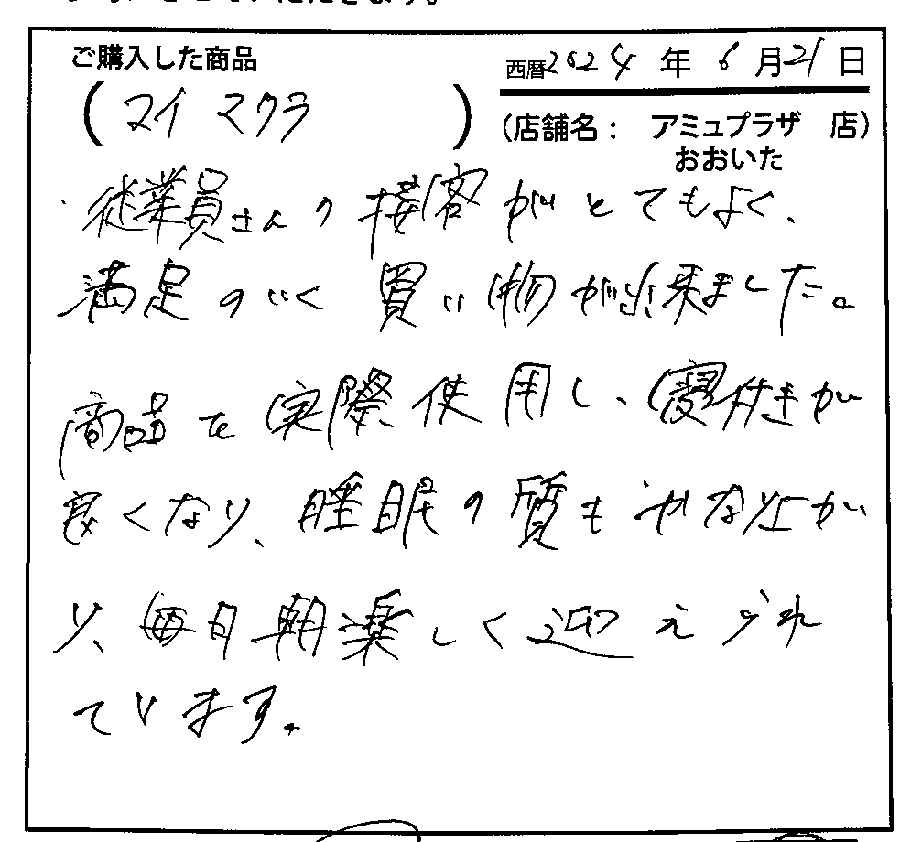 ご購入した商品
西暦2024年6月21日
(マイマクラ)
(店舗名: アミュプラザ 店)
おおいた
従業員さんの接客がとてもよく、
満足のいく買い物が出来ました。
商品を実際使用し、寝付きが
良くなり、睡眠の質も
り、毎日朝楽しく迎えられ
ています。